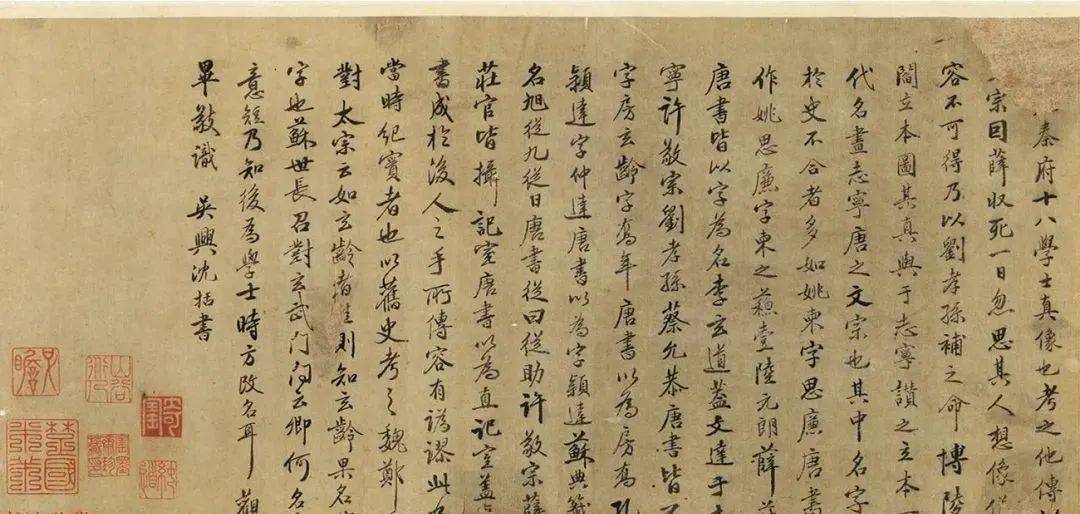 秦府十八學士真像也考之他傳
宗曰薛收死一日忽思其人想像
容不可得乃以劉孝孫補之命博陵
閻立本圖其真與于志寧讃之立本
代名畫志寧唐之文宗也其中名字
於史不合者多如姚柬字思廉唐書
作姚思廉字柬之蘓壹陸元朗薛
唐書皆以字為名李玄道蓋文達于
寧許敬宗劉孝孫蔡允恭唐書皆
字房玄齡字喬年唐書以為房喬孔
穎達字仲達唐書以為字穎達蘇典籤
名旭從九從日唐書從曰從助許敬宗薛
莊官皆攝記室唐書以為直記室蓋
書成於後人之手所傳容有譌謬此乃
當時紀實者也以舊史考之魏鄭
對太宗云如玄齡者則知玄齡果名
字也蘇世長召對玄武門門云卿何名
意短乃知後為學士時方改名耳觀
畢敬識 吳興沈括書